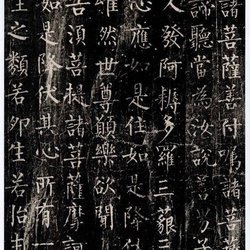 諸菩薩善付囑諸菩
諦聽當為汝說善男
人發阿耨多羅三藐三
心應如是住如是降伏
唯然世尊願樂欲聞
告須菩提諸菩薩摩訶
如是降伏其心所有一
生之類若卵生若胎